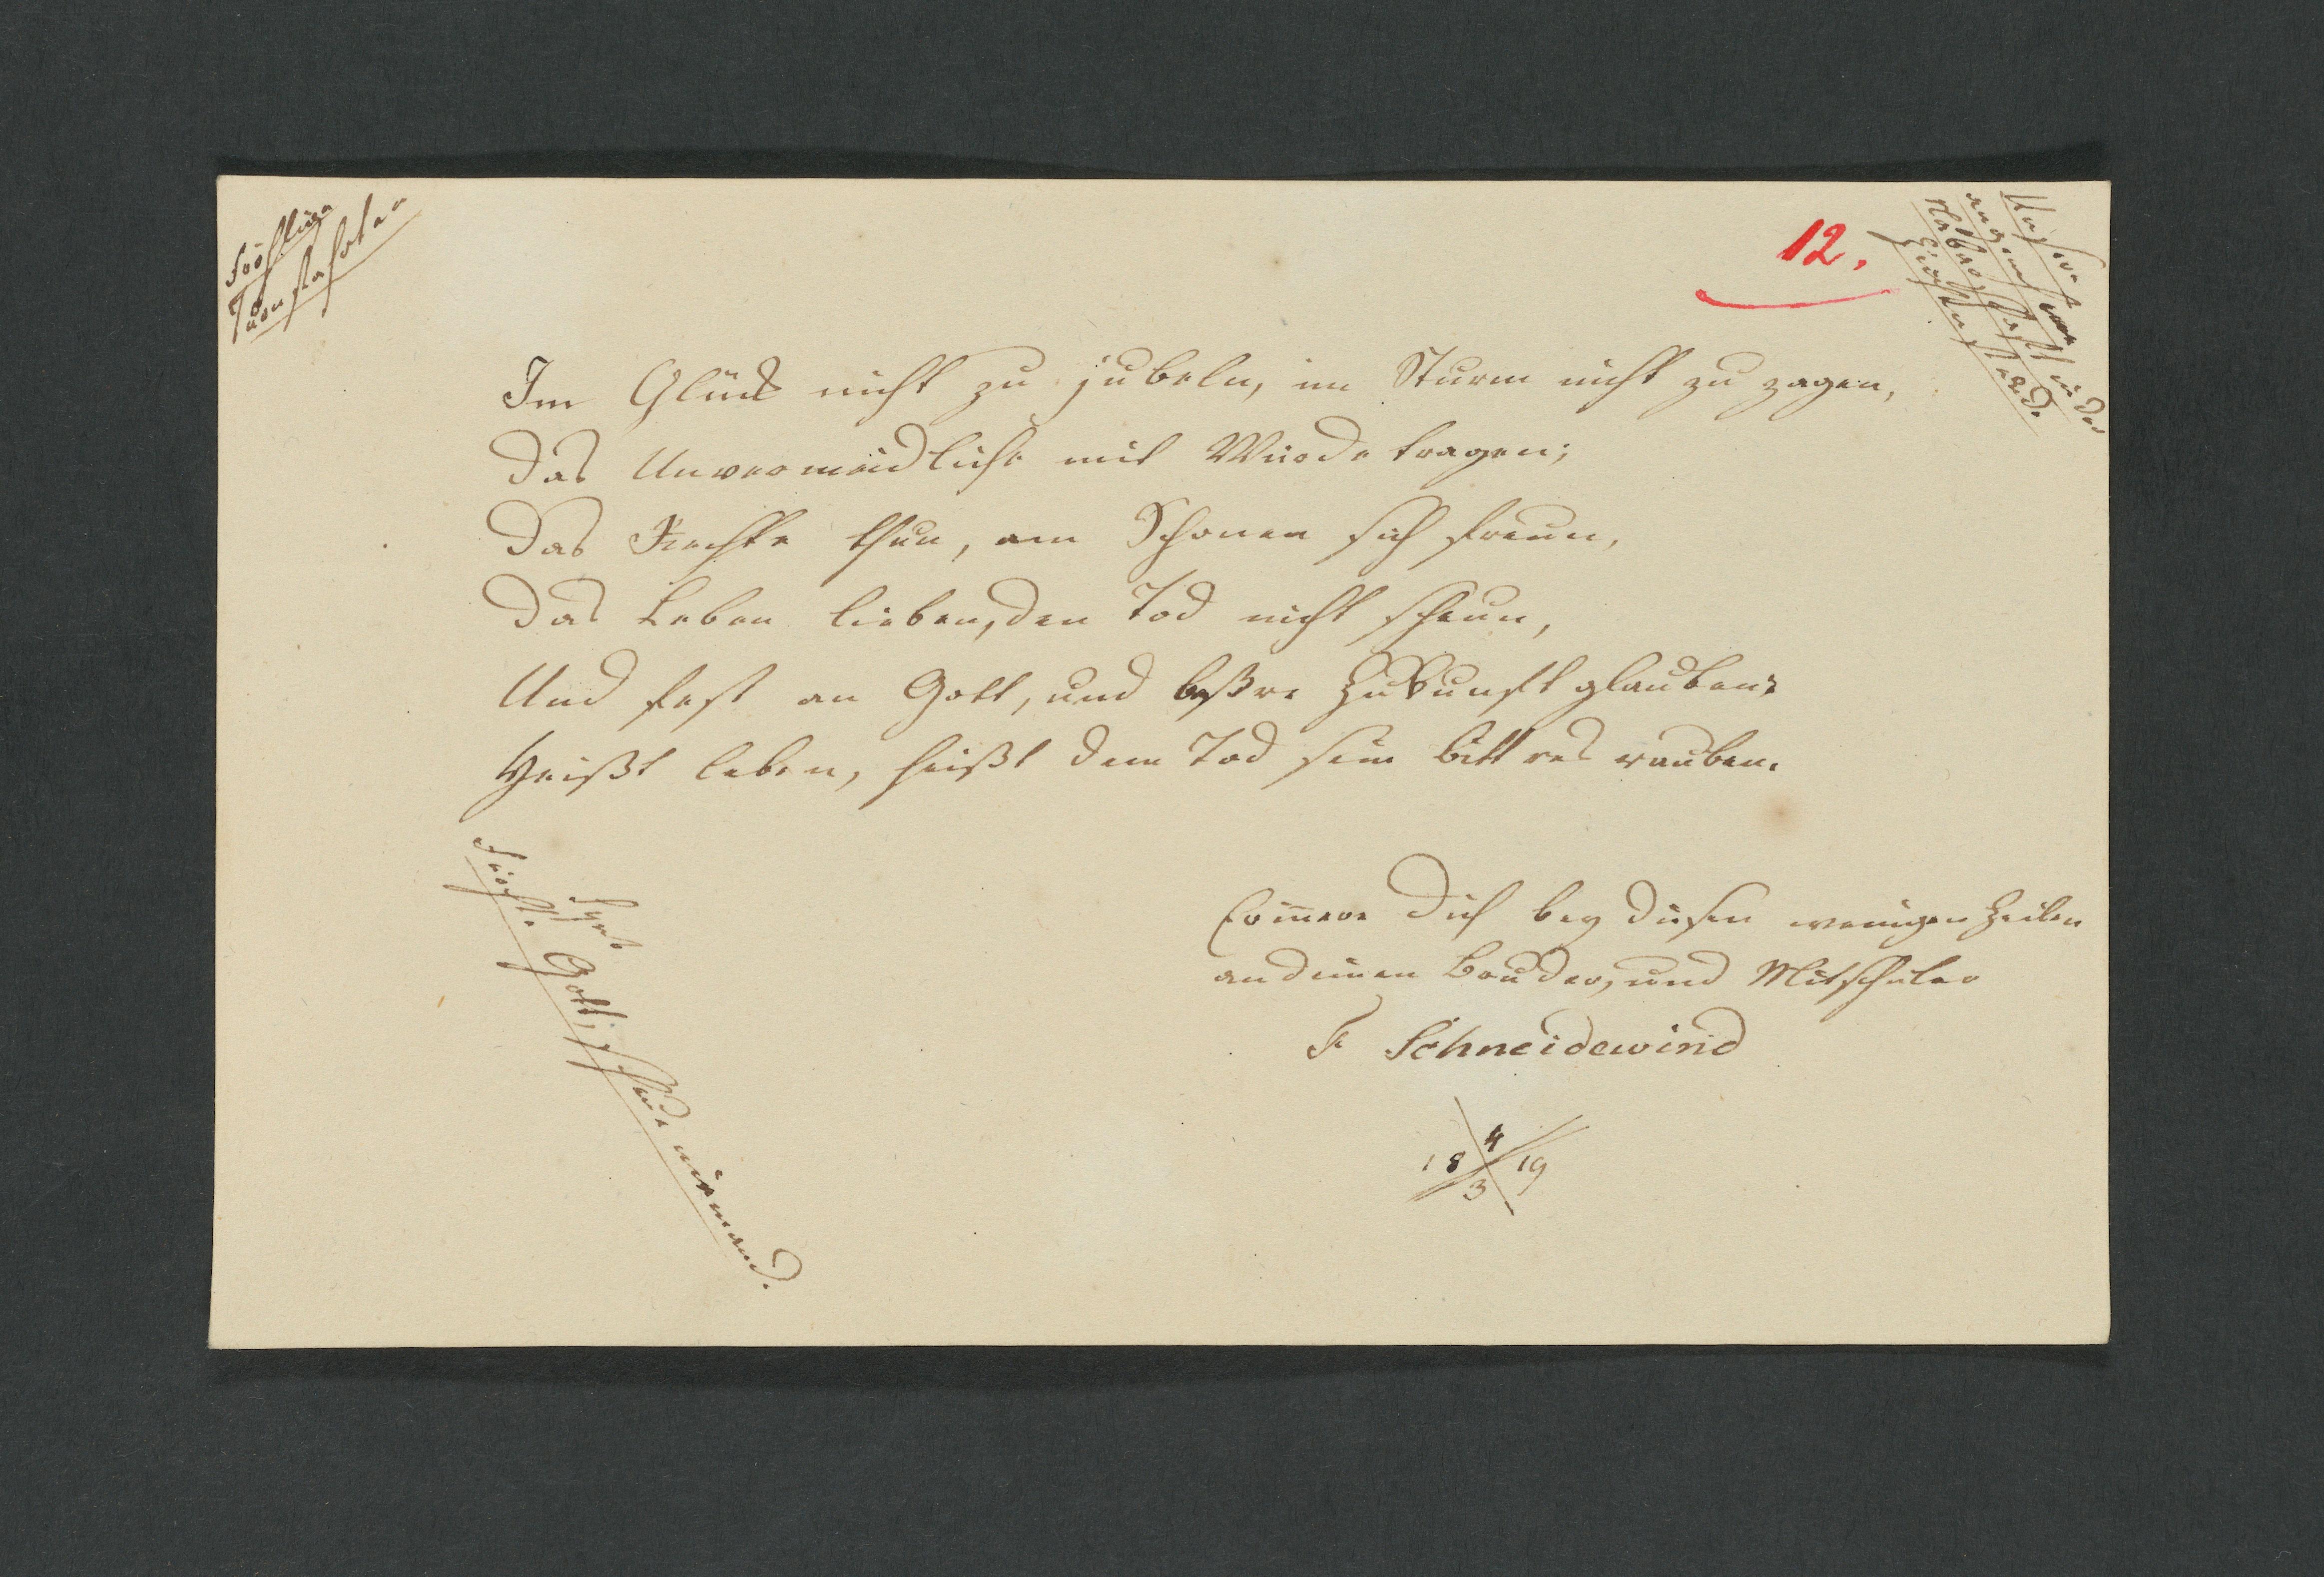 12.
Unsre
in der
Im Glück nicht zu jubeln, im Sturm nicht zu zagen,
Das Unvermeidliche mit Würde tragen;
Das Rechte thun, am Schönen sich freun,
Das Leben lieben, den Tod nicht scheun,
Und fest an Gott, und beßre Zukunft glauben:
Heißt leben, heißt dem Tod sein bittres rauben.
Symb
Fürchte Gott; scheue niemand.
Erinnere Dich bey diesen wenigen Zeilen
an deinen Bruder, und Mitschüler
F Schneidewind
18 4/3 19